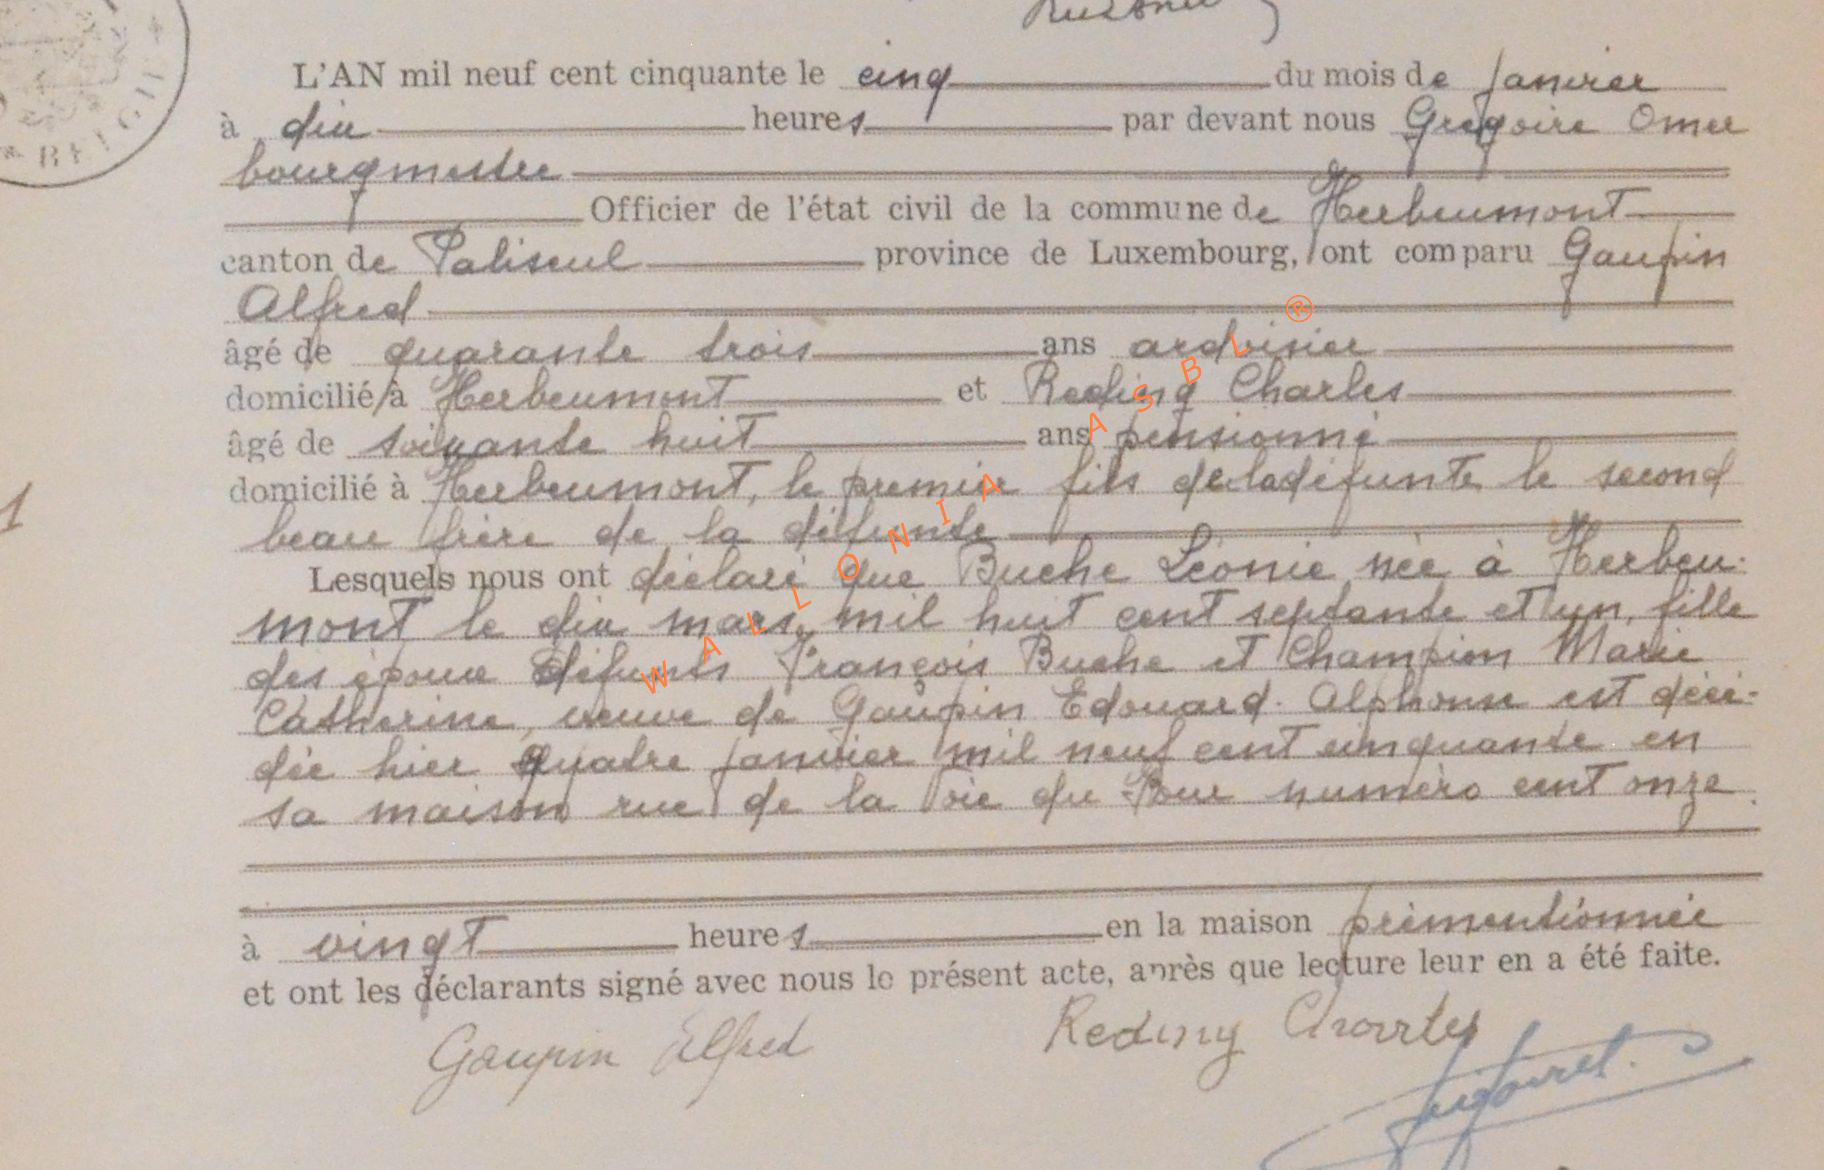 L'AN mil neuf cent cinquante le cinq du mois de janvier
à dix heures par devant nous Grégoire Omer
bourgmestre
Officier de l'état civil de la commune de Herbeumont
canton de Paliseul province de Luxembourg, ont comparu Gaupin
Alfred
âgé de quarante trois ans ardoisier
domicilié à Herbeumont et Reding Charles
âgé de soixante huit ans pensionné
domicilié à Herbeumont, le premier fils de la défunte le second
beau frère de la défunte
Lesquels nous ont déclaré que Buche Léonie née à Herbeu-
mont le dix mars mil huit cent septante et un, fille
des époux défunts François Buche et Champion Marie
Catherine, veuve de Gaupin Edouard-Alphonse est décé-
dée hier quatre janvier mil neuf cent cinquante en
sa maison rue de la du numéro cent onze
à vingt heures en la maison prémentionnée
et ont les déclarants signé avec nous le présent acte, après que lecture leur en a été faite.
Gaupin Alfred Reding Charles
WALLONIA ASBL ®